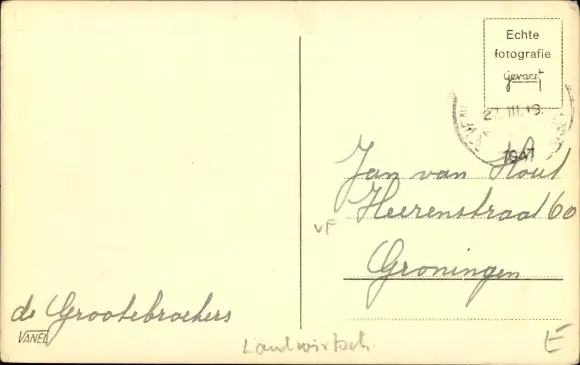 Echte
fotografie
Gevaert
27.III.19.
1941
Jan van Hout
Heerenstraat 60
VF
Groningen
de Grootebroekers
VANEL
Landwirtsch.
E